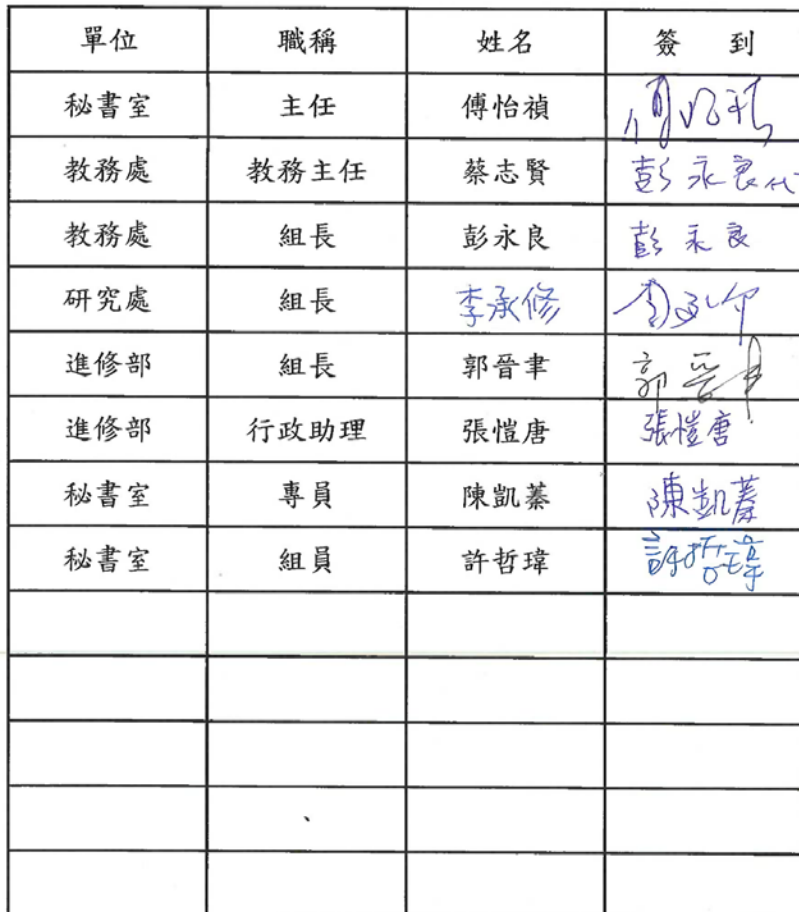 單位 職稱 姓名 簽 到
秘書室 主任 傅怡禎
教務處 教務主任 蔡志賢 彭永良代
教務處 組長 彭永良 彭永良
研究處 組長 李承修
進修部 組長 郭晉聿 郭晉聿
進修部 行政助理 張愷唐 張愷唐
秘書室 專員 陳凱蓁 陳凱蓁
秘書室 組員 許哲瑋 許哲瑋